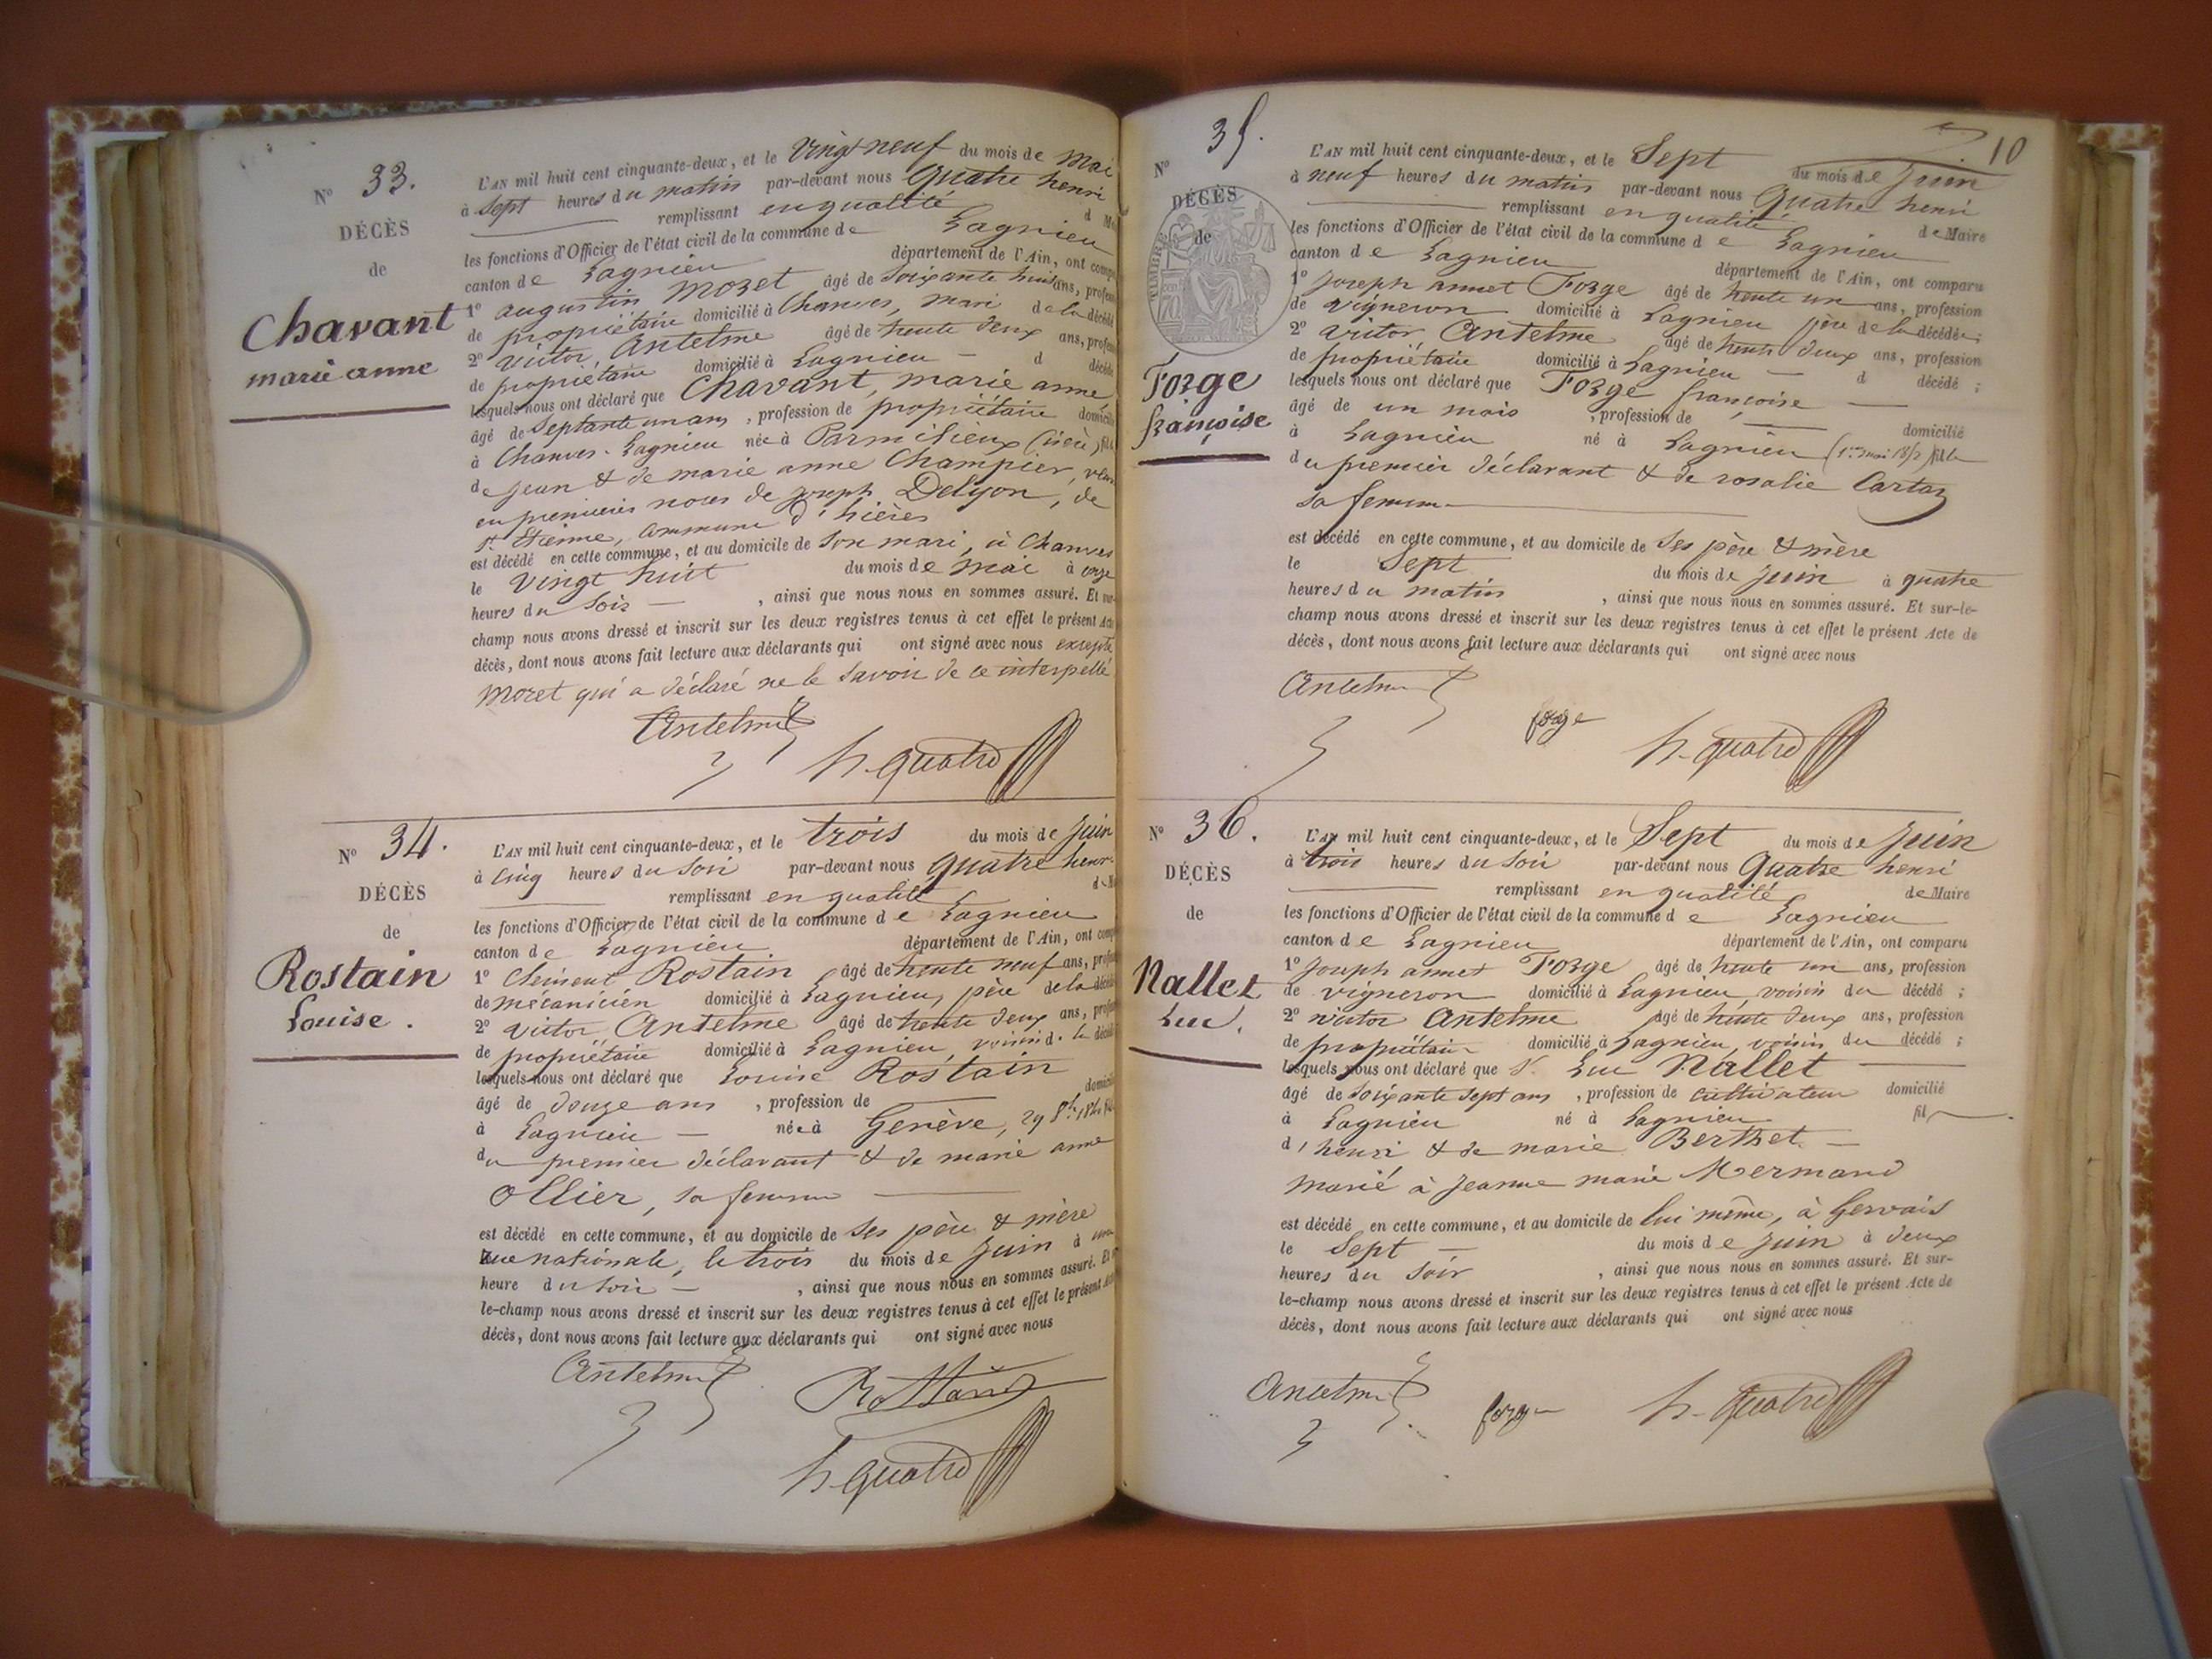 N° 33.
DÉCÈS
de
Chavant
marie anne
L'AN mil huit cent cinquante-deux, et le Vingt neuf du mois de Mai
à Sept heures du matin par-devant nous Quatre henri
remplissant en qualité d
les fonctions d'Officier de l'état civil de la commune de Lagnieu
canton de Lagnieu département de l'Ain, ont
1° augustin Moret âgé de Soixante huit ans,
de propriétaire domicilié à Chanves, mari de la décédé
2° Victor Antelme âgé de trente deux ans,
de propriétaire domicilié à Lagnieu — d décédé
lesquels nous ont déclaré que Chavant, marie anne
âgé de Septante un ans, profession de propriétaire
à Chanves - Lagnieu née à Parmilieux (isère)
de jean & de marie anne Champier,
en premières noces de joseph Delyon, de
St. Etienne, commune d'hières
est décédé en cette commune, et au domicile de Son mari, à Chanves
le Vingt huit du mois de Mai à onze
heures du Soir — , ainsi que nous nous en sommes assuré. Et sur-
champ nous avons dressé et inscrit sur les deux registres tenus à cet effet le présent Acte
décès, dont nous avons fait lecture aux déclarants qui ont signé avec nous excepté
Moret qui a déclaré ne le Savoir de ce interpellé
Antelme
h. quatre
N° 34.
DÉCÈS
de
Rostain
Louise.
L'AN mil huit cent cinquante-deux, et le trois du mois de Juin
à cinq heures du Soir par-devant nous Quatre henri
remplissant en qualité
les fonctions d'Officier de l'état civil de la commune de Lagnieu
canton de Lagnieu département de l'Ain, ont
1° Clément Rostain âgé de trente neuf ans,
de mécanicien domicilié à Lagnieu, père de la décédé
2° Victor Antelme âgé de trente deux ans,
de propriétaire domicilié à Lagnieu, voisin d. la
lesquels nous ont déclaré que Louise Rostain
âgé de douze ans , profession de
à Lagnieu — née à Genève, 29
du premier déclarant & de marie anne
Ollier, sa femme
est décédé en cette commune, et au domicile de Ses père & mère
Rue nationale, le trois du mois de Juin à une
heure du Soir — , ainsi que nous nous en sommes assuré. Et
le-champ nous avons dressé et inscrit sur les deux registres tenus à cet effet le présent
décès, dont nous avons fait lecture aux déclarants qui ont signé avec nous
Antelme
Rostain
h. quatre
10
N° 35.
DÉCÈS
de
TIMBRE
Forge
françoise
L'AN mil huit cent cinquante-deux, et le Sept du mois de Juin
à neuf heures du matin par-devant nous Quatre henri
remplissant en qualité de Maire
les fonctions d'Officier de l'état civil de la commune de Lagnieu
canton de Lagnieu département de l'Ain, ont comparu
1° Joseph annet Forge âgé de trente un ans, profession
de vigneron domicilié à Lagnieu père de la décédée;
2° Victor Antelme âgé de trente deux ans, profession
de propriétaire domicilié à Lagnieu — d décédé ;
lesquels nous ont déclaré que Forge françoise —
âgé de un mois , profession de — domicilié
à Lagnieu né à Lagnieu (1er mai 1852) fille
du premier déclarant & de rosalie Cartaz
sa femme
est décédé en cette commune, et au domicile de Ses père & mère
le Sept du mois de Juin à quatre
heures du matin , ainsi que nous nous en sommes assuré. Et sur-le-
champ nous avons dressé et inscrit sur les deux registres tenus à cet effet le présent Acte de
décès, dont nous avons fait lecture aux déclarants qui ont signé avec nous
Antelme
forge
h. quatre
N° 36.
DÉCÈS
de
Nallet
Luc.
L'AN mil huit cent cinquante-deux, et le Sept du mois de Juin
à trois heures du Soir par-devant nous Quatre henri
remplissant en qualité de Maire
les fonctions d'Officier de l'état civil de la commune de Lagnieu
canton de Lagnieu département de l'Ain, ont comparu
1° Joseph annet Forge âgé de trente un ans, profession
de vigneron domicilié à Lagnieu, voisin du décédé ;
2° victor Antelme âgé de trente deux ans, profession
de propriétaire domicilié à Lagnieu, voisin du décédé ;
lesquels nous ont déclaré que S. Luc Nallet
âgé de Soixante Sept ans , profession de cultivateur domicilié
à Lagnieu né à Lagnieu fil
d'henri & de marie Berthet —
marié à jeanne marie Mermand
est décédé en cette commune, et au domicile de lui même, à Gervais
le Sept — du mois de Juin à deux
heures du Soir , ainsi que nous nous en sommes assuré. Et sur-
le-champ nous avons dressé et inscrit sur les deux registres tenus à cet effet le présent Acte de
décès, dont nous avons fait lecture aux déclarants qui ont signé avec nous
Antelme
forge
h. quatre